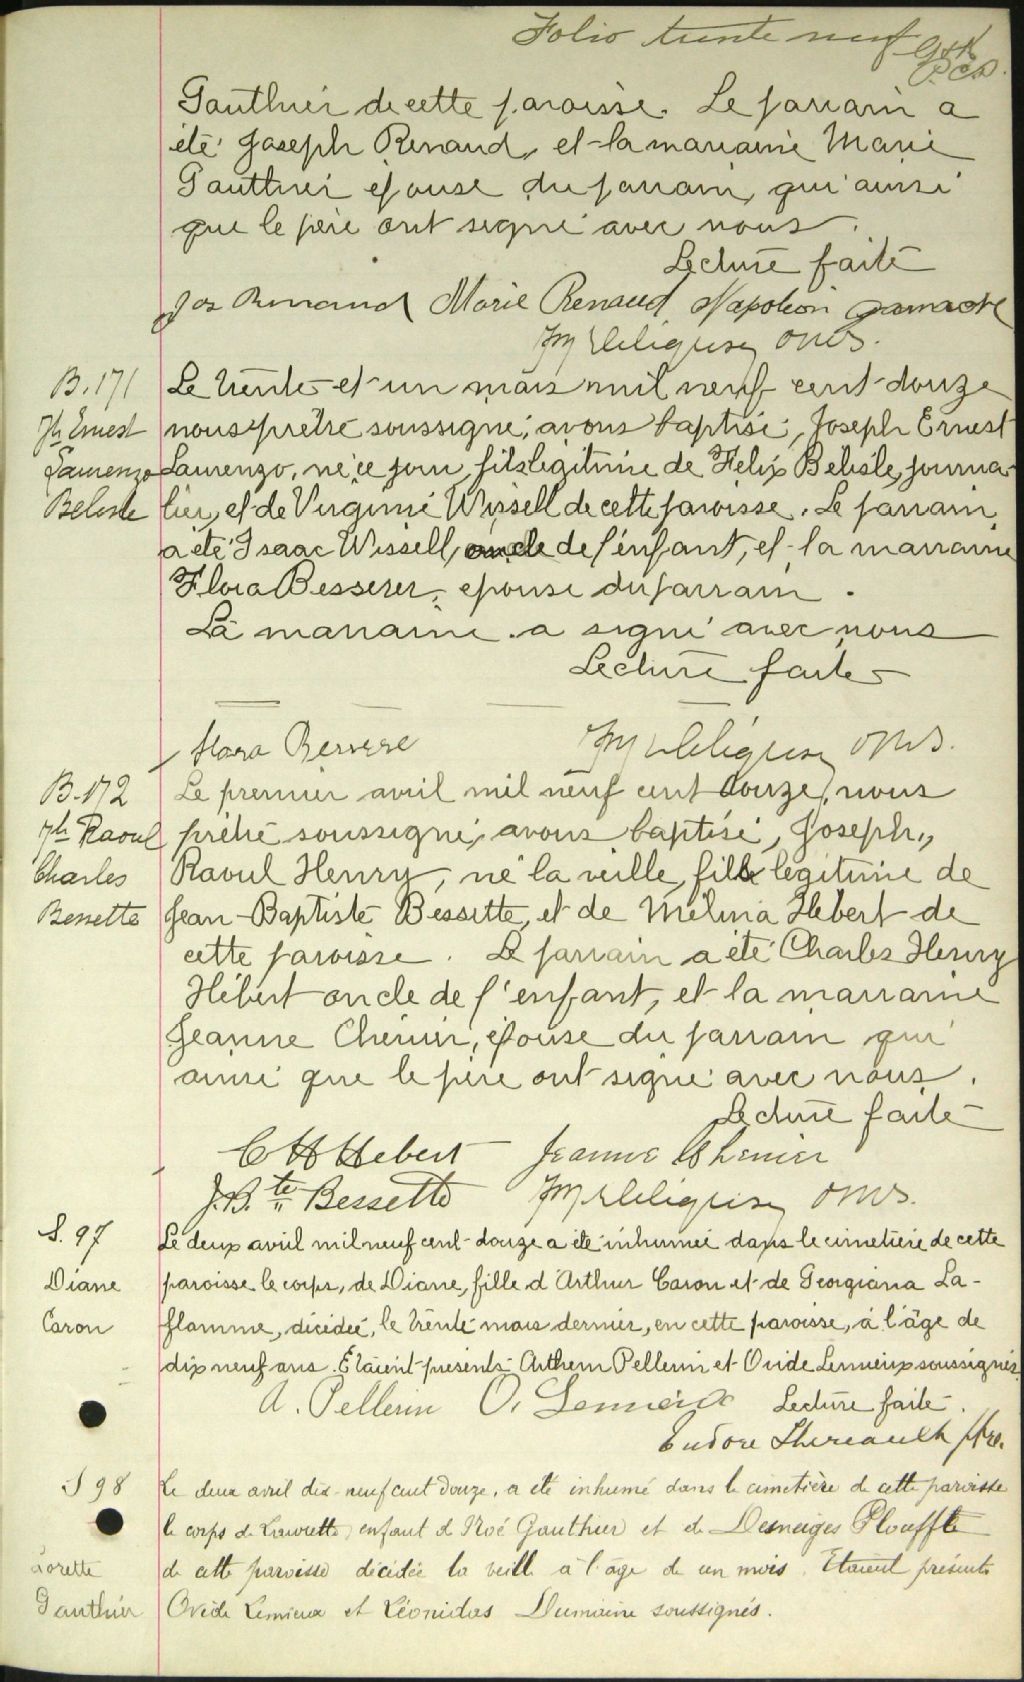 Folio trente neuf
Gauthier de cette paroisse. Le parrain a
été Joseph Renaud, et la marraine Marie
Gauthier épouse du parrain, qui ainsi
que le père ont signé avec nous.
Lecture faite
Jos Renaud Marie Renaud Napoléon Gamache
O.M.S.
B. 171
Jh Ernest
Laurenzo
Belisle
Le trente-et-un mars mil neuf cent-douze
nous prêtre soussigné, avons baptisé, Joseph Ernest
Laurenzo, né ce jour, fils légitime de Felix Belisle, journa-
lier, et de Virginie Wissell de cette paroisse. Le parrain
a été Isaac Wissell, oncle de l'enfant, et la marraine
Flora Besserer, épouse du parrain.
La marraine a signé avec nous
Lecture faite
Flora Besserer O.M.S.
B-172
Jh Raoul
Charles
Bessette
Le premier avril mil neuf cent douze, nous
prêtre soussigné, avons baptisé, Joseph,
Raoul Henry, né la veille, fils légitime de
Jean-Baptiste Bessette, et de Mélina Hébert de
cette paroisse. Le parrain a été Charles Henry
Hébert oncle de l'enfant, et la marraine
Jeanne Chénier, épouse du parrain qui
ainsi que le père ont signé avec nous.
Lecture faite
C H Hebert Jeanne Chenier
J.B.te Bessette O.M.S.
S. 97
Diane
Caron
Le deux avril mil neuf cent-douze a été inhumée dans le cimetière de cette
paroisse le corps, de Diane, fille d'Arthur Caron et de Georgiana La-
flamme, décidée, le trente mars dernier, en cette paroisse, à l'âge de
dix neuf ans. Étaient présents Arthem Pellerin et Ovide Lemieux soussignés.
A. Pellerin O. Lemieux Lecture faite.
Eudore Theriault ptre.
S 98
Lorette
Gauthier
Le deux avril dix-neuf cent douze, a été inhumé dans le cimetière de cette paroisse
le corps de Laurette, enfant de Noé Gauthier et de Demeiges Plouffte
de cette paroisse décédée la veille à l'âge de un mois. Etaient présents
Ovide Lemieux et Léonidas Dumaine soussignés.